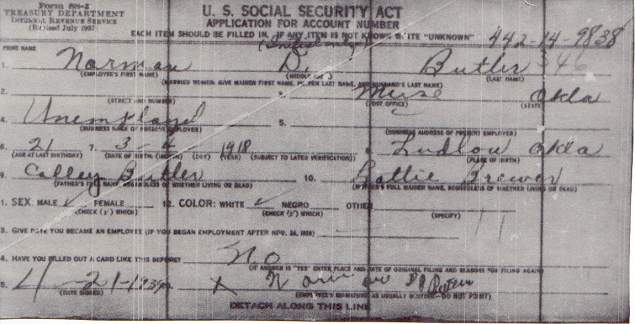 Form SS-5
TREASURY DEPARTMENT
INTERNAL REVENUE SERVICE
(Revised July 1937)
U. S. SOCIAL SECURITY ACT
APPLICATION FOR ACCOUNT NUMBER
EACH ITEM SHOULD BE FILLED IN. IF ANY ITEM IS NOT KNOWN WRITE "UNKNOWN"
442-14-9838
(Initial only)
PRINT NAME
1. Norman D. Butler
(EMPLOYEE'S FIRST NAME) (MIDDLE NAME) (LAST NAME)
2. 3. Muse Okla
(STREET AND NUMBER) (POST OFFICE) (STATE)
4. Unemployed 5.
(BUSINESS NAME OF PRESENT EMPLOYER) (BUSINESS ADDRESS OF PRESENT EMPLOYER)
6. 21 7. 3-4 1918 8. Ludlow Okla
(AGE AT LAST BIRTHDAY) (DATE OF BIRTH (MONTH) (DAY) (YEAR) (SUBJECT TO LATER VERIFICATION)) (PLACE OF BIRTH)
9. Colley Butler 10. Lottie Brewer
(FATHER'S FULL NAME, REGARDLESS OF WHETHER LIVING OR DEAD) (MOTHER'S FULL MAIDEN NAME, REGARDLESS OF WHETHER LIVING OR DEAD)
1. SEX: MALE ✓ FEMALE 12. COLOR: WHITE ✓ NEGRO OTHER
(CHECK (✓) WHICH) (CHECK (✓) WHICH) (SPECIFY)
3. GIVE DATE YOU BECAME AN EMPLOYEE (IF YOU BEGAN EMPLOYMENT AFTER NOV. 24, 1936)
4. HAVE YOU FILLED OUT A CARD LIKE THIS BEFORE? No
(IF ANSWER IS "YES" ENTER PLACE AND DATE OF ORIGINAL FILING AND REASONS FOR FILING AGAIN)
5. 4-21-1939 X Norman D Butler
(DATE SIGNED) (EMPLOYEE'S SIGNATURE AS USUALLY WRITTEN—DO NOT PRINT)
DETACH ALONG THIS LINE